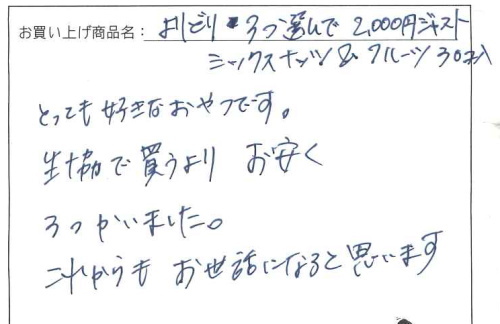 お買い上げ商品名： よりどり・3つ選んで2,000円ジャスト
ミックスナッツ&フルーツ30袋入
とっても好きなおやつです。
生協で買うより お安く
3つかいました。
これからも お世話になると思います